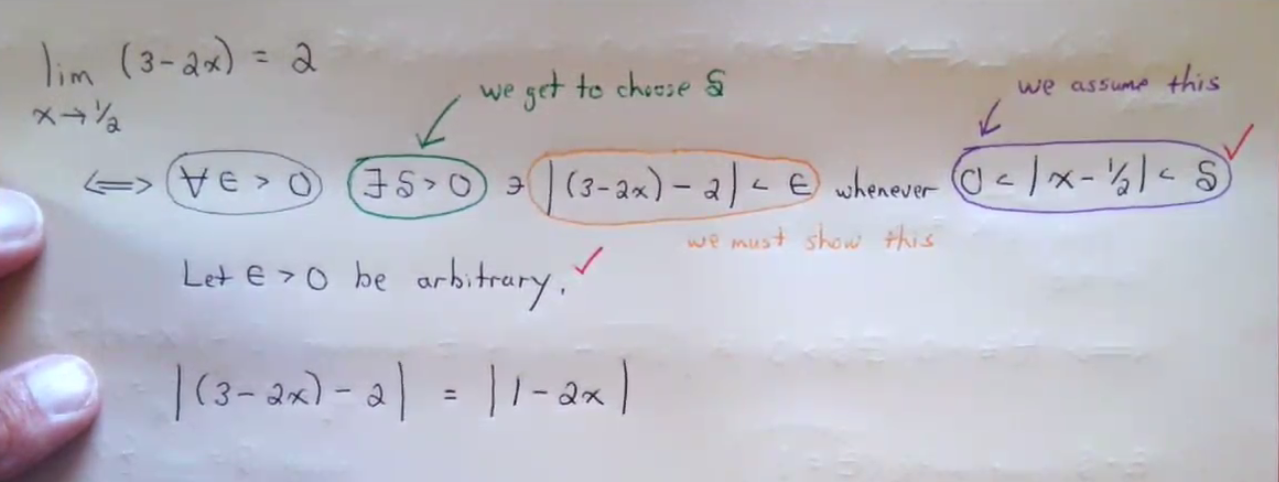 lim (3-2x) = 2
x→1/2
we get to choose δ
we assume this
⟺ ∀ε > 0 ∃δ > 0 ∋ |(3-2x) - 2| < ε whenever 0 < |x - 1/2| < δ ✓
we must show this
Let ε > 0 be arbitrary. ✓
|(3-2x) - 2| = |1-2x|